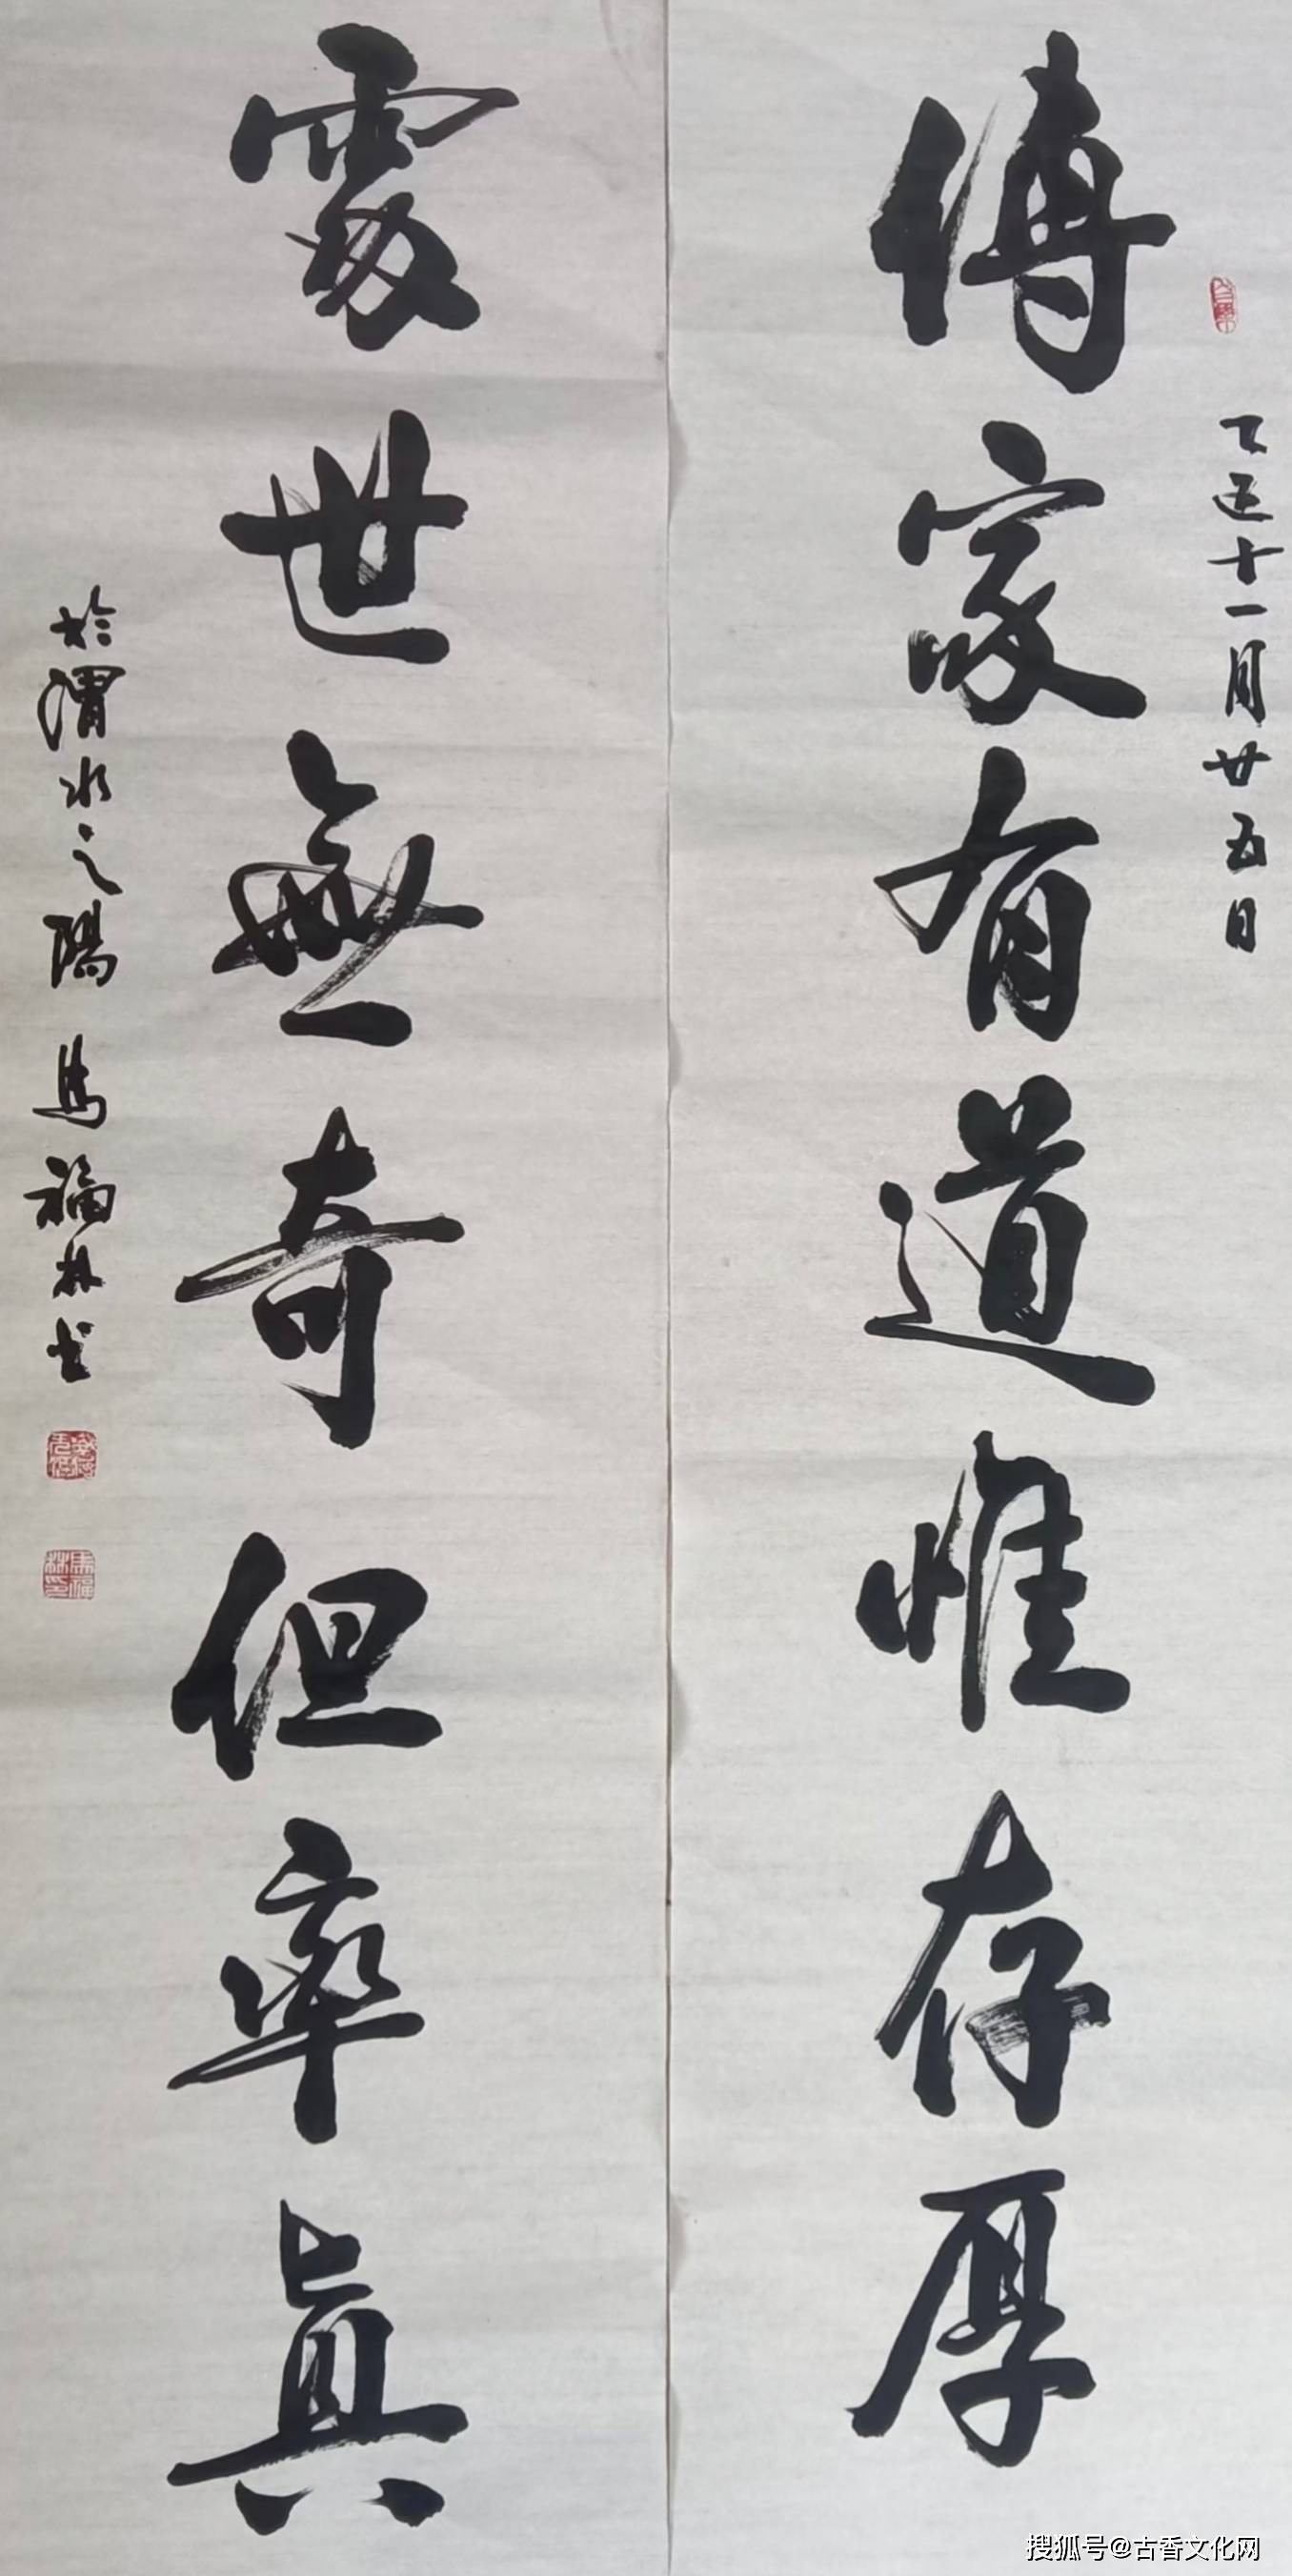 十一月廿五日
傳家有道惟存厚
處世無奇但率眞
於渭水之陽 馬福林书
馬福林印
搜狐号@古香文化网